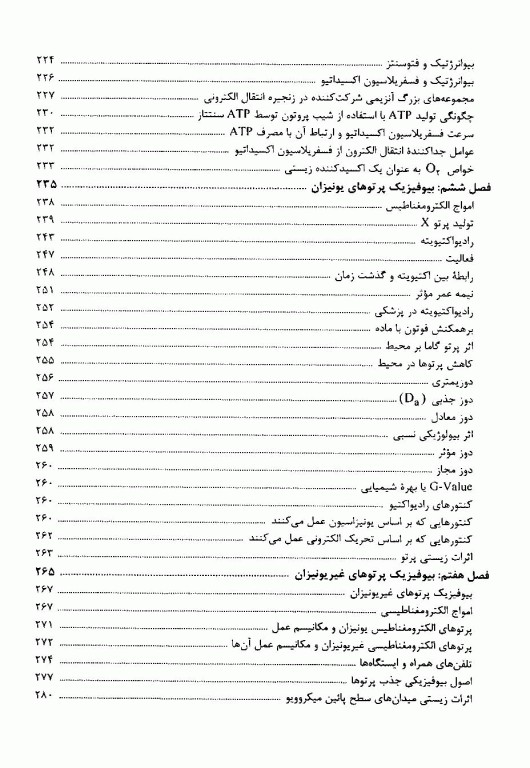 بیوانرژتیک و فتوسنتز ۲۲۴
بیوانرژتیک و فسفریلاسیون اکسیداتیو ۲۲۶
مجموعه‌های بزرگ آنزیمی شرکت‌کننده در زنجیره انتقال الکترونی ۲۲۷
چگونگی تولید ATP با استفاده از شیب پروتون توسط ATP سنتتاز ۲۳۰
سرعت فسفریلاسیون اکسیداتیو و ارتباط آن با مصرف ATP ۲۳۲
عوامل جداکنندهٔ انتقال الکترون از فسفریلاسیون اکسیداتیو ۲۳۲
خواص O₂ به عنوان یک اکسیدکننده زیستی ۲۳۳
فصل ششم: بیوفیزیک پرتوهای یونیزان ۲۳۵
امواج الکترومغناطیس ۲۳۸
تولید پرتو X ۲۳۹
رادیواکتیویته ۲۴۳
فعالیت ۲۴۷
رابطهٔ بین اکتیویته و گذشت زمان ۲۴۸
نیمه عمر مؤثر ۲۵۱
رادیواکتیویته در پزشکی ۲۵۲
برهمکنش فوتون با ماده ۲۵۴
اثر پرتو گاما بر محیط ۲۵۴
کاهش پرتوها در محیط ۲۵۵
دوزیمتری ۲۵۶
دوز جذبی (Da) ۲۵۷
دوز معادل ۲۵۸
اثر بیولوژیکی نسبی ۲۵۸
دوز مؤثر ۲۵۹
دوز مجاز ۲۶۰
G-Value یا بهرهٔ شیمیایی ۲۶۰
کنتورهای رادیواکتیو ۲۶۰
کنتورهایی که بر اساس یونیزاسیون عمل می‌کنند ۲۶۰
کنتورهایی که بر اساس تحریک الکترونی عمل می‌کنند ۲۶۲
اثرات زیستی پرتو ۲۶۳
فصل هفتم: بیوفیزیک پرتوهای غیریونیزان ۲۶۵
بیوفیزیک پرتوهای غیریونیزان ۲۶۷
امواج الکترومغناطیسی ۲۶۷
پرتوهای الکترومغناطیس یونیزان و مکانیسم عمل ۲۷۱
پرتوهای الکترومغناطیسی غیریونیزان و مکانیسم عمل آن‌ها ۲۷۲
تلفن‌های همراه و ایستگاه‌ها ۲۷۴
اصول بیوفیزیکی جذب پرتوها ۲۷۷
اثرات زیستی میدان‌های سطح پائین میکروویو ۲۸۰